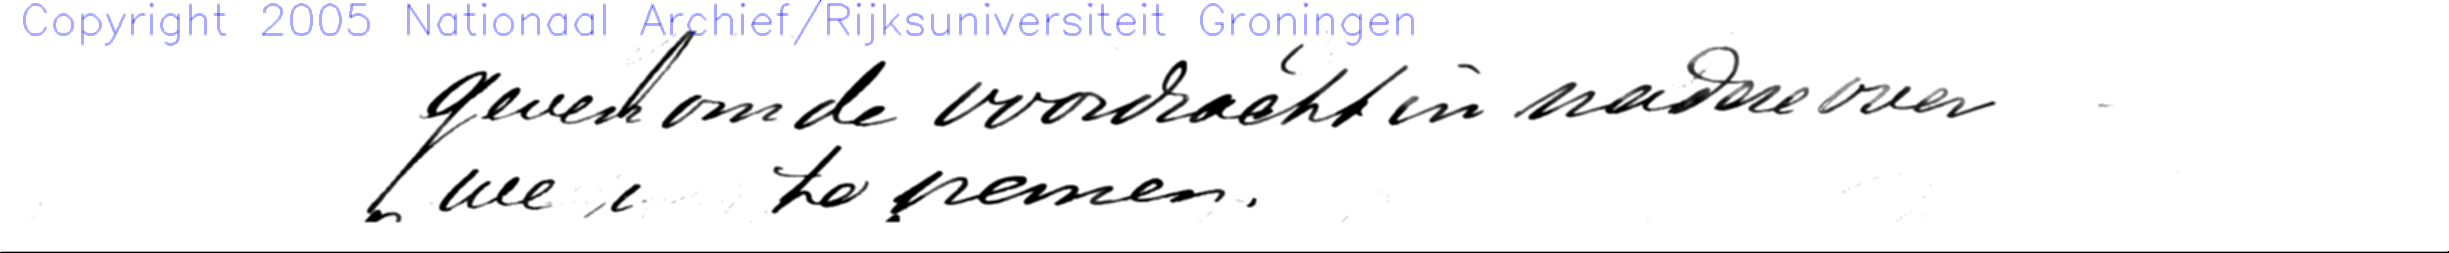 Copyright 2005 Nationaal Archief/Rijksuniversiteit Groningen
geven om de voordracht in nadere over
we te nemen.